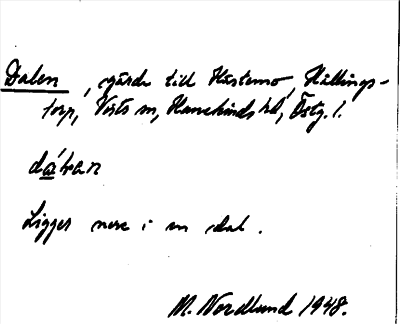 Dalen, gärde till Hästemo, Hällings-
torp, Vists sn, Hanekinds hd, Östg. l.
dá̱lan
Ligger nere i en dal.
M. Nordlund 1948.